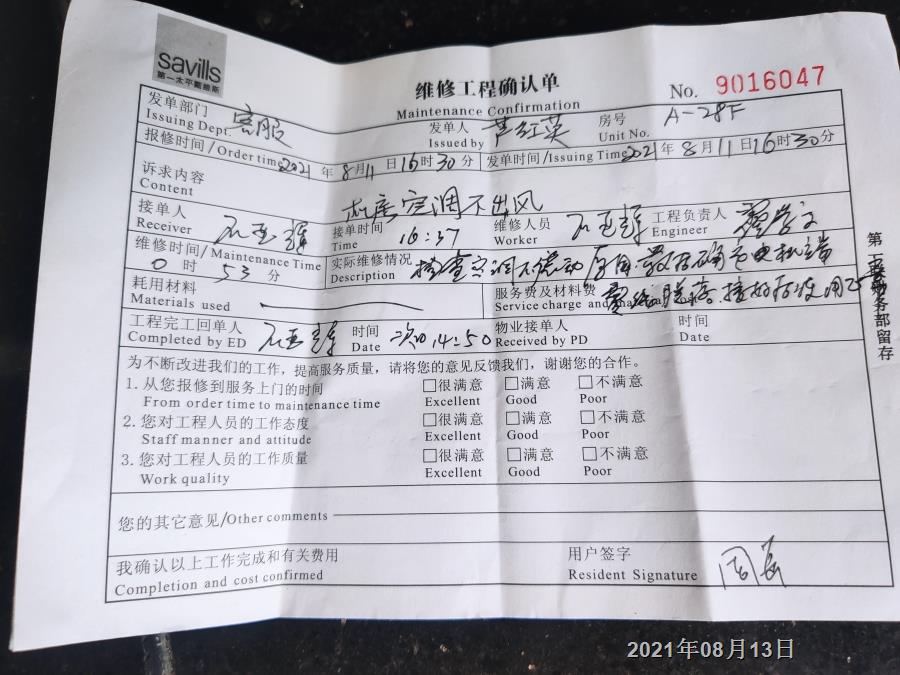 savills
第一太平戴维斯
维修工程确认单
Maintenance Confirmation
No. 9016047
发单部门 客服 发单人 房号 A-28F
Issuing Dept. Issued by Unit No.
报修时间/Order time 2021 年 8 月 11 日 16 时 30 分 发单时间/Issuing Time 2021 年 8 月 11 日 16 时 30 分
诉求内容 空调不出风
Content
接单人 石亚辉 接单时间 16:37 维修人员 石亚辉 工程负责人
Receiver Time Worker Engineer
维修时间/Maintenance Time 实际维修情况 检查空调不
0 时 53 分 Description
耗用材料 服务费及材料费
Materials used Service charge and
工程完工回单人 石亚辉 时间 14:50 物业接单人 时间
Completed by ED Date Received by PD Date
为不断改进我们的工作，提高服务质量，请将您的意见反馈我们，谢谢您的合作。
1. 从您报修到服务上门的时间 □很满意 □满意 □不满意
From order time to maintenance time Excellent Good Poor
2. 您对工程人员的工作态度 □很满意 □满意 □不满意
Staff manner and attitude Excellent Good Poor
3. 您对工程人员的工作质量 □很满意 □满意 □不满意
Work quality Excellent Good Poor
您的其它意见/Other comments
我确认以上工作完成和有关费用 用户签字
Completion and cost confirmed Resident Signature
务部留存
2021年08月13日